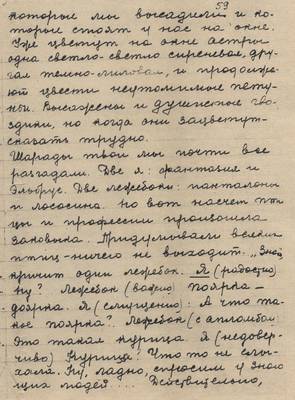 59
которые мы высадили и ко-
торые стоят у нас на окне.
Уже цветут на окне астры
одна светло-светло сиреневая, дру-
гая темно-лиловая, и продолжа-
ют цвести неутомимые пету-
ньи. Высажены и душистые гво-
здики, но когда они зацветут-
сказать трудно.
Шарады твои мы почти все
разгадали. Две я: фантазия и
Эльбрус. Две лежебоки: панталоны
и лососина. Но вот насчет пти
цы и профессии произошла
заковыка. Придумывали всяких
птиц-ничего не выходит...
кричит один лежебок. Я (радостно)
ну? Лежебок (важно) Поярка-
доярка. Я (смущенно): А что та-
кое поярка? Лежебок (с апломбом)
Это такая курица. Я (недовер-
чиво) Курица? Что то не слы-
хала. Ну, ладно, спросим у знаю
щих людей... Действительно,